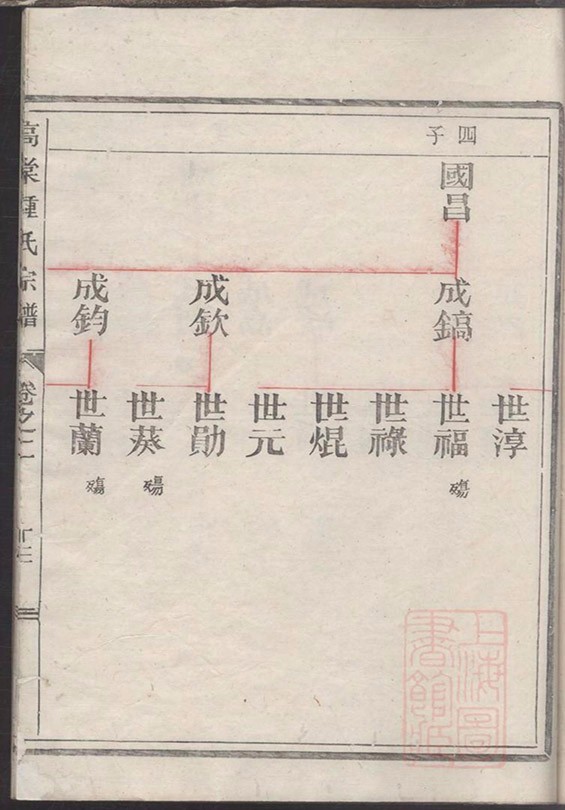 四子
國昌
成鎬
成欽
成鈞
世淳
世福
殤
世祿
世焜
世元
世勛
世葵
殤
世蘭
殤
高棠鍾氏宗譜
卷之二
上海圖書館藏